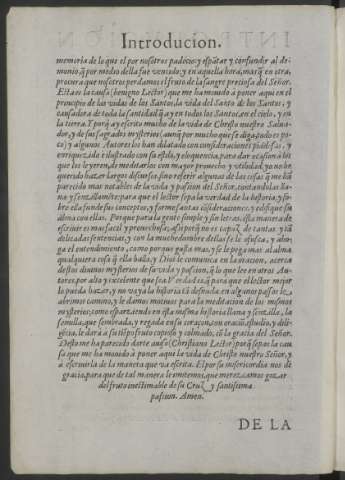 Introducion.
memoria de lo que el por nosotros padecio: y espãtar y confundir al de-
monio, q̃ por medio della fue vencido, y en aquella hora, mas q̃ en otra,
procura que nosotros perdamos el fruto de la sangre preciosa del Señor.
Esta es la causa (benigno Lector) que me ha mouido à poner aqui en el
principio de las vidas de los Santos, la vida del Santo de los Santos, y
causadora de toda la santidad q̃ ay en todos los Santos, en el cielo, y en
la tierra. Y porq̃ ay escrito mucho de la vida de Christo nuestro Salua-
dor, y de sus sagrados mysterios (aunq̃ por mucho que se diga, todo es po-
co) y algunos Autores los han dilatado con consideraciones piadosas, y
enriquezido e ilustrado con su estilo, y eloquencia, para dar ocasiõ a los
que los leyeren, de meditarlos con mayor prouecho y vtilidad, yo no he
querido hazer largos discursos, sino referir algunas de las cosas q̃ me hã
parecido mas notables de la vida y passion del Señor, contandolas lla-
na y senzillamẽte: para que el lector sepa la verdad de la historia, y so-
bre ella funde sus conceptos, y forme santas cõsideraciones, y edifique su
alma con ellas. Porque para la gente simple y sin letras, esta manera de
escriuir es mas facil y prouechosa, assi porq̃ no es capaz de tantas y tã
delicadas sentencias, y con la muchedumbre dellas se le ofusca, y aho-
ga el entendimiento, como porque gusta mas, y se le pega mas al alma
qualquiera cosa q̃ ella halla, y Dios le comunica en la oracion, acerca
destos diuinos mysterios de su vida y passion, q̃ lo que lee en otros Au-
tores, por alto y excelente que sea. Verdad es, q̃ para que el lector mejor
lo pueda hazer, y no vaya la historia tã desnuda, en algunos passos le
abrimos camino, y le damos motiuos para la meditacion de los mismos
mysterios, como esparziendo en esta misma historia llana y senzilla, la
semilla, que sembrada, y regada en su coraçon, con oraciõ, estudio, y dili-
gẽcia, le darà a su tiẽpo fruto copioso y colmado, cõ la gracia del Señor.
Desto me ha parecido darte auiso (Christiano Lector) porq̃ sepas la cau
sa que me ha mouido à poner aqui la vida de Christo nuestro Señor, y
à escriuirla de la manera que va escrita. El por su misericordia nos de
gracia, para que de tal manera le imitemos, que merezcamos gozar
del fruto inestimable de su Cruz, y santissima
passion. Amen.
DE LA